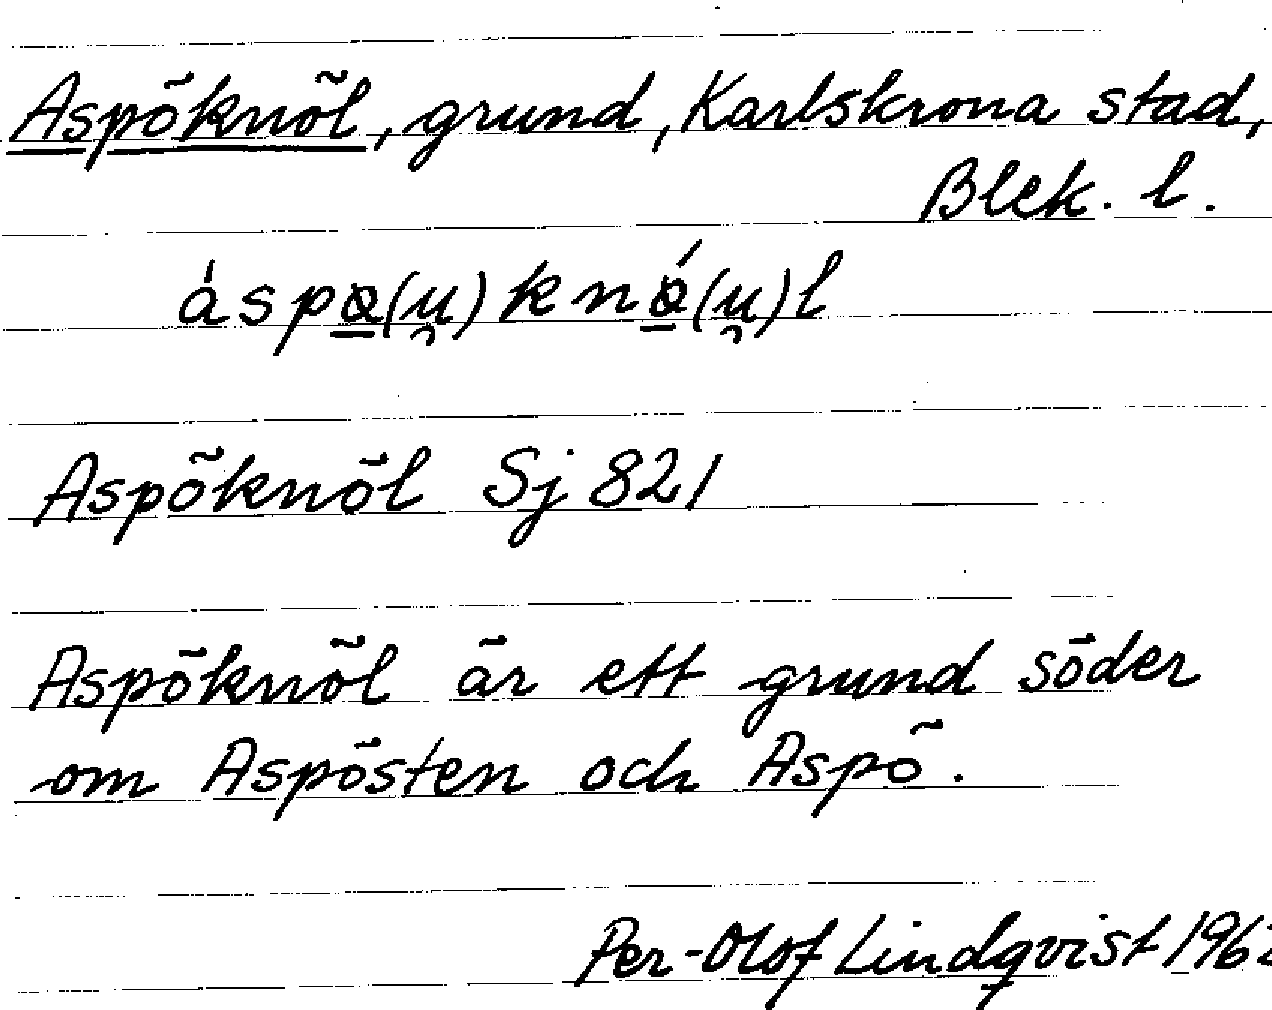 Aspöknöl, grund, Karlskrona stad,
Blek. l.
áspꝍ(u̯)knꝍ́(u̯)l
Aspöknöl Sj 821
Aspöknöl är ett grund söder
om Aspösten och Aspö.
Per-Olof Lindqvist